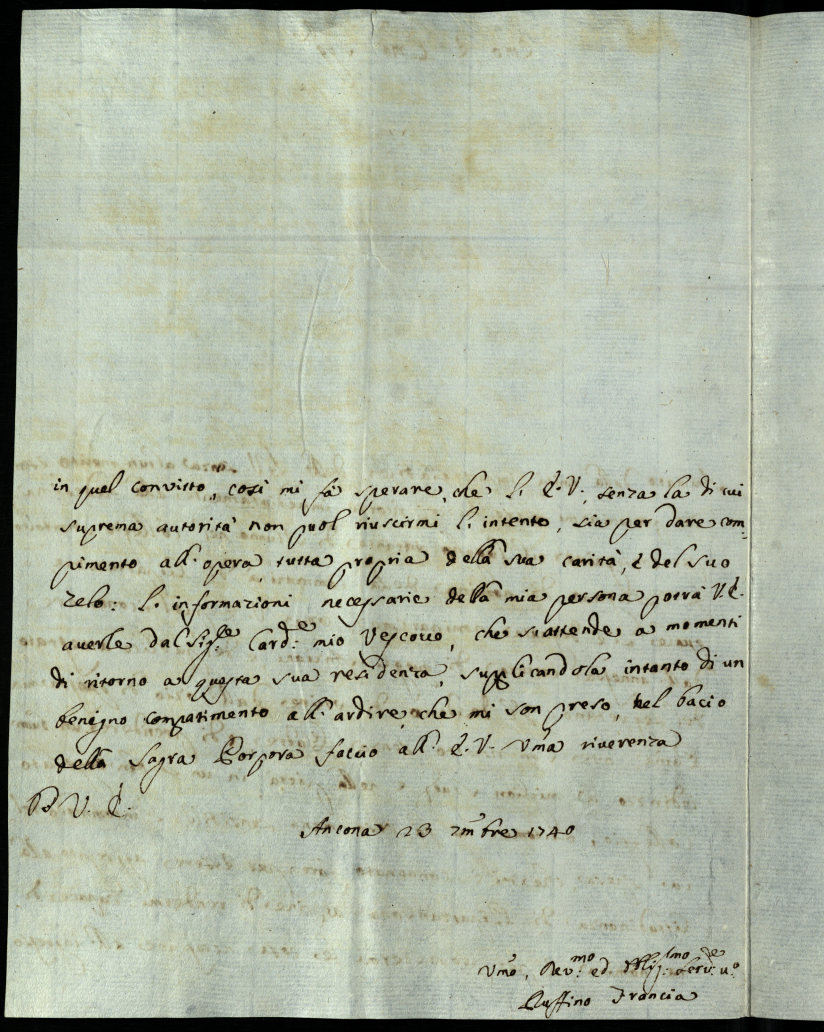 in quel convitto, così mi fà sperare, che l'. E. V., senza la di cui
suprema autorità non puol riuscirmi l'. intento, sia per dare com=
pimento all'. opera, tutta propria della sua carità, è del suo
zelo: l'. informazioni necessarie della mia persona potrà V. E.
averle dal Sig.re Card.le mio Vescovo, che si attende a momenti
di ritorno a questa sua residenza, supplicandola intanto di un
benigno compatimento all'. ardire, che mi son preso, nel bacio
della Sagra Porpora faccio all'. E. V. Uma riverenza
D V. E.
Ancona 23 7mbre 1740
Umo, Rev.mo ed Servre.
Ruffino Francia